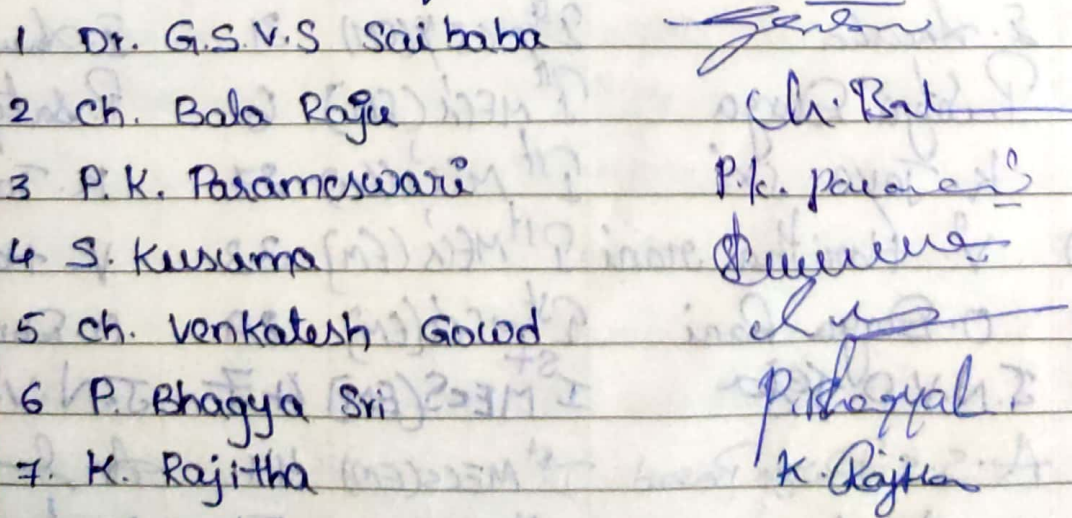 1 Dr. G.S.V.S Saibaba
2 Ch. Bala Raju Ch. Bal
3 P.K. Parameswari P.K.
4 S. Kusuma
5 Ch. Venkatesh Gowd
6 P. Bhagya Sri
7. K. Rajitha K. Rajitha